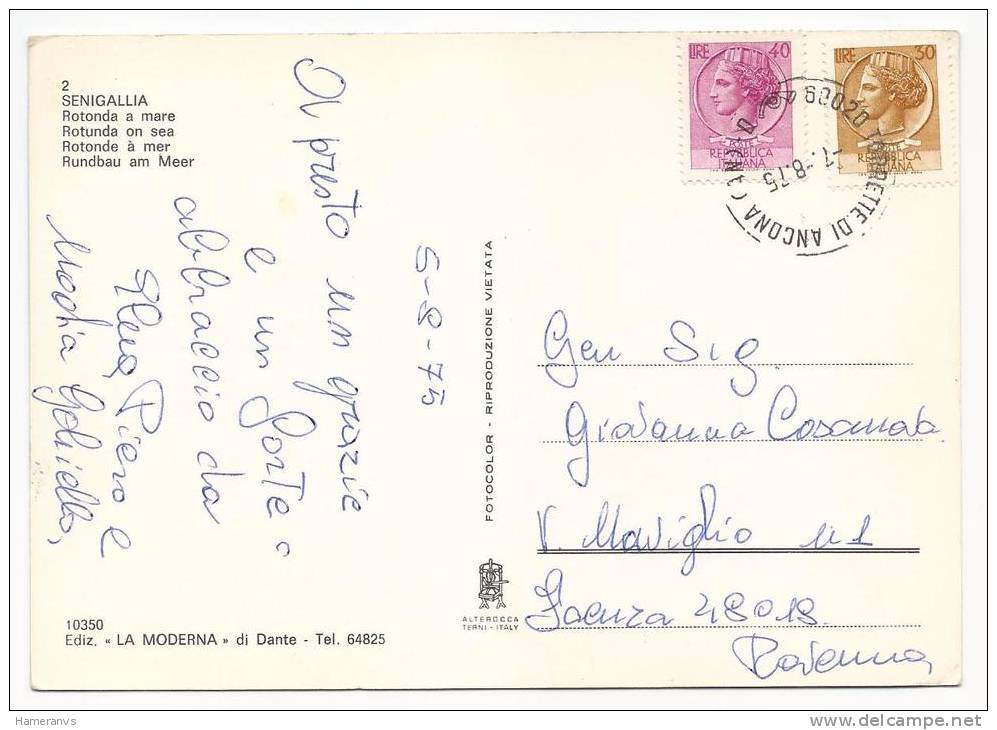 2
SENIGALLIA
Rotonda a mare
Rotunda on sea
Rotonde à mer
Rundbau am Meer
A presto un grazie
e un forte
abbraccio da
Piero e
5-8-75
FOTOCOLOR - RIPRODUZIONE VIETATA
LIRE 40
POSTE
REPVBBLICA
ITALIANA
LIRE 30
REPVBBLICA
ITALIANA
60020 TORRETTE DI ANCONA
7.-8.75
Gen Sig
Giovanna Casanova
V. Naviglio n 1
Faenza 48018
Ravenna
ALTEROCCA
TERNI - ITALY
10350
Ediz. « LA MODERNA » di Dante - Tel. 64825
Hameranvs
www.delcampe.net